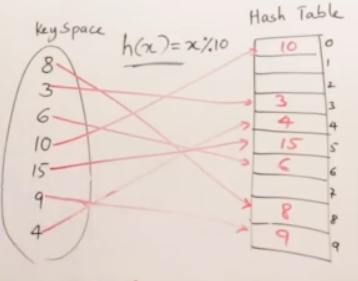 Key Space
8
3
6
10
15
9
4
h(x) = x%10
Hash Table
10 0
1
2
3 3
4 4
15 5
6 6
7
8 8
9 9